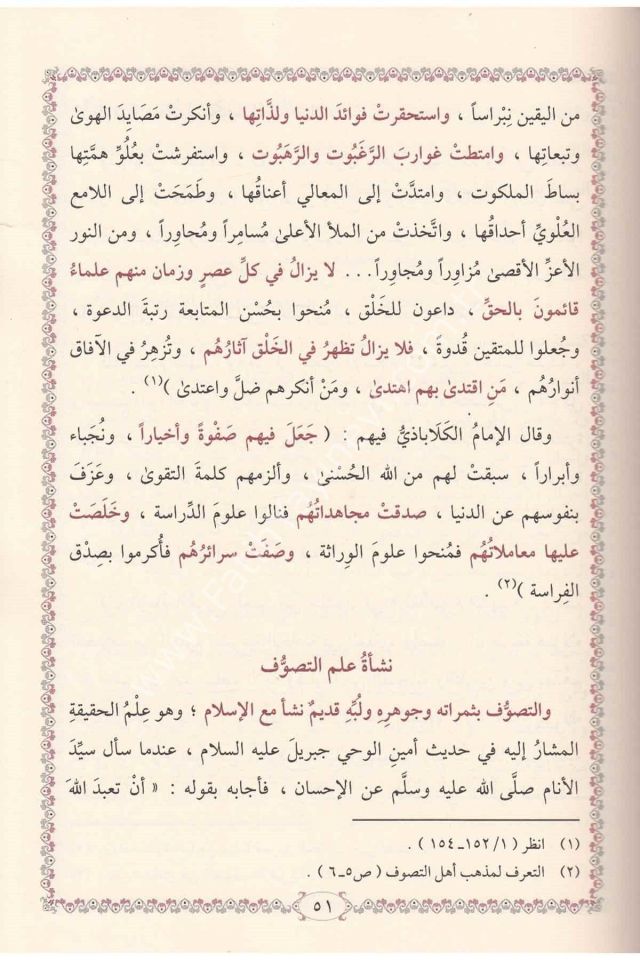 من اليقين نِبْراساً ، واستحقرتْ فوائدَ الدنيا ولذَّاتِها ، وأنكرتْ مَصَايِدَ الهوىٰ
وتبعاتِها ، وامتطتْ غواربَ الرَّغَبُوت والرَّهَبُوت ، واستفرشتْ بعُلُوِّ همَّتِها
بساطَ الملكوت ، وامتدَّتْ إلى المعالي أعناقُها ، وطَمَحَتْ إلى اللامع
العُلْويِّ أحداقُها ، واتَّخذتْ من الملأ الأعلىٰ مُسامِراً ومُحاوِراً ، ومن النور
الأعزِّ الأقصىٰ مُزاوِراً ومُجاوِراً... لا يزالُ في كلِّ عصرٍ وزمان منهم علماءُ
قائمونَ بالحقِّ ، داعون للخَلْق ، مُنحوا بحُسْن المتابعة رتبةَ الدعوة ،
وجُعلوا للمتقين قُدوةً ، فلا يزالُ تظهرُ في الخَلْق آثارُهُم ، وتُزهِرُ في الآفاق
أنوارُهُم ، مَنِ اقتدىٰ بهم اهتدىٰ ، ومَنْ أنكرهم ضلَّ واعتدىٰ )(١) .
وقال الإمامُ الكَلَاباذيُّ فيهم : ( جَعَلَ فيهم صَفْوةً وأخياراً ، ونُجَباء
وأبراراً ، سبقتْ لهم من الله الحُسْنىٰ ، وألزمهم كلمةَ التقوىٰ ، وعَزَفَ
بنفوسهم عن الدنيا ، صدقتْ مجاهداتُهُم فنالوا علومَ الدِّراسة ، وخَلَصَتْ
عليها معاملاتُهُم فمُنحوا علومَ الوِراثة ، وصَفَتْ سرائرُهُم فأُكرموا بصِدْق
الفِراسة )(٢) .
نشأةُ علم التصوُّف
والتصوُّف بثمراته وجوهرِه ولُبِّه قديمٌ نشأ مع الإسلام ؛ وهو عِلْمُ الحقيقةِ
المشارُ إليه في حديث أمينِ الوحي جبريلَ عليه السلام ، عندما سأل سيِّدَ
الأنام صلَّى الله عليه وسلَّم عن الإحسان ، فأجابه بقوله : « أنْ تعبدَ اللهَ
(١) انظر ( ١/ ١٥٢ـ١٥٤ ) .
(٢) التعرف لمذهب أهل التصوف ( ص٥ـ٦ ) .
٥١